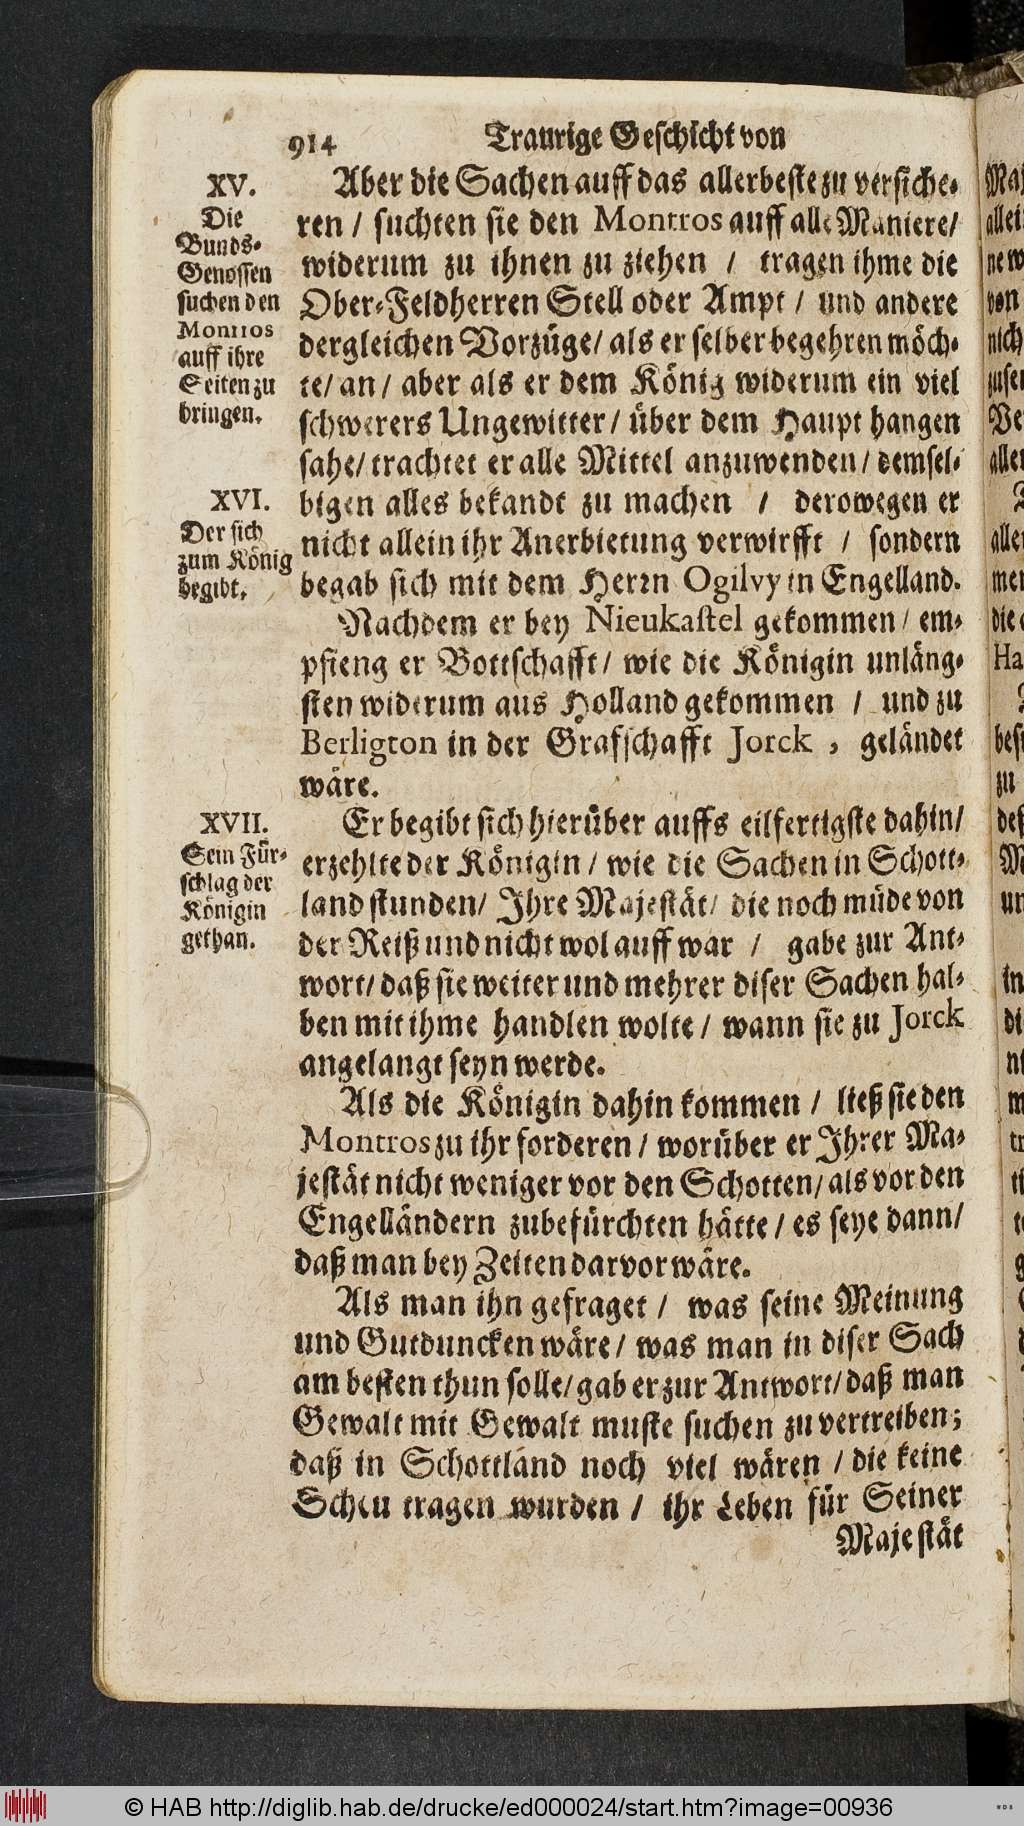 914 Traurige Geschicht von
XV.
Die
Bunds-
Genossen
suchen den
Montros
auff ihre
Seiten zu
bringen.
Aber die Sachen auff das allerbeste zu versiche-
ren / suchten sie den Montros auff alle Maniere /
widerum zu ihnen zu ziehen / tragen ihme die
Ober-Feldherren Stell oder Ampt / und andere
dergleichen Vorzüge / als er selber begehren möch-
te / an / aber als er dem König widerum ein viel
schwerers Ungewitter / über dem Haupt hangen
sahe / trachtet er alle Mittel anzuwenden / demsel-
XVI.
Der sich
zum König
begibt.
bigen alles bekandt zu machen / derowegen er
nicht allein ihr Anerbietung verwirfft / sondern
begab sich mit dem Herrn Ogilvy in Engelland.
Nachdem er bey Nieukastel gekommen / em-
pfieng er Bottschafft / wie die Königin unläng-
sten widerum aus Holland gekommen / und zu
Berligton in der Grafschafft Jorck , geländet
wäre.
XVII.
Sein Für-
schlag der
Königin
gethan.
Er begibt sich hierüber auffs eilfertigste dahin /
erzehlte der Königin / wie die Sachen in Schott-
land stunden / Ihre Majestät / die noch müde von
der Reiß und nicht wol auff war / gabe zur Ant-
wort / daß sie weiter und mehrer diser Sachen hal-
ben mit ihme handlen wolte / wann sie zu Jorck
angelangt seyn werde.
Als die Königin dahin kommen / ließ sie den
Montros zu ihr forderen / worüber er Ihrer Ma-
jestät nicht weniger vor den Schotten / als vor den
Engelländern zubefürchten hätte / es seye dann /
daß man bey Zeiten darvor wäre.
Als man ihn gefraget / was seine Meinung
und Gutduncken wäre / was man in diser Sach
am besten thun solle / gab er zur Antwort / daß man
Gewalt mit Gewalt muste suchen zu vertreiben;
daß in Schottland noch viel wären / die keine
Scheu tragen wurden / ihr Leben für Seiner
Majestät
© HAB http://diglib.hab.de/drucke/ed000024/start.htm?image=00936